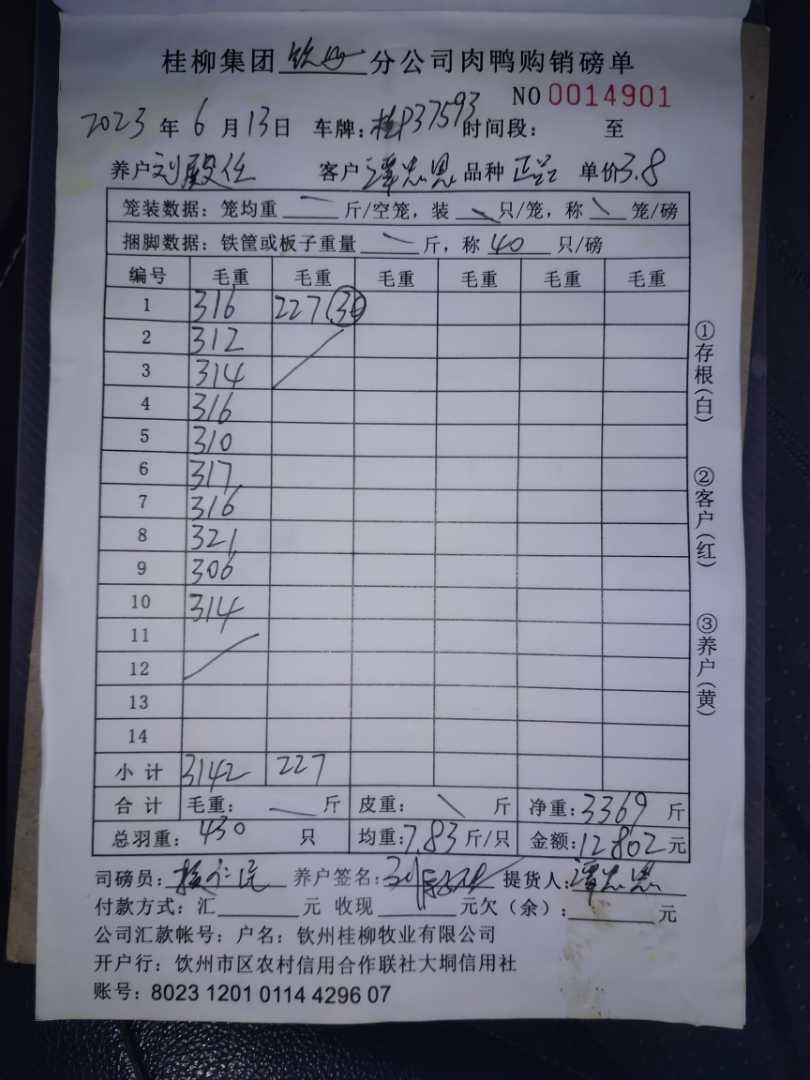 桂柳集团 钦州 分公司肉鸭购销磅单
NO 0014901
2023 年 6 月 13 日 车牌: 桂P37593 时间段: 至
养户 刘 任 客户 谭忠恩 品种 正品 单价 3.8
笼装数据: 笼均重 斤/空笼, 装 只/笼, 称 笼/磅
捆脚数据: 铁筐或板子重量 斤, 称 40 只/磅
编号 毛重 毛重 毛重 毛重 毛重 毛重
1 316 227 (30)
2 312
3 314
4 316
5 310
6 317
7 316
8 321
9 306
10 314
11
12
13
14
小计 3142 227
合计 毛重: 斤 皮重: 斤 净重: 3369 斤
总羽重: 430 只 均重: 7.83 斤/只 金额: 12802 元
司磅员: 养户签名: 提货人: 谭忠恩
付款方式: 汇 元 收现 元欠(余): 元
公司汇款帐号: 户名: 钦州桂柳牧业有限公司
开户行: 饮州市区农村信用合作联社大垌信用社
账号: 8023 1201 0114 4296 07
①存根(白)
②客户(红)
③养户(黄)